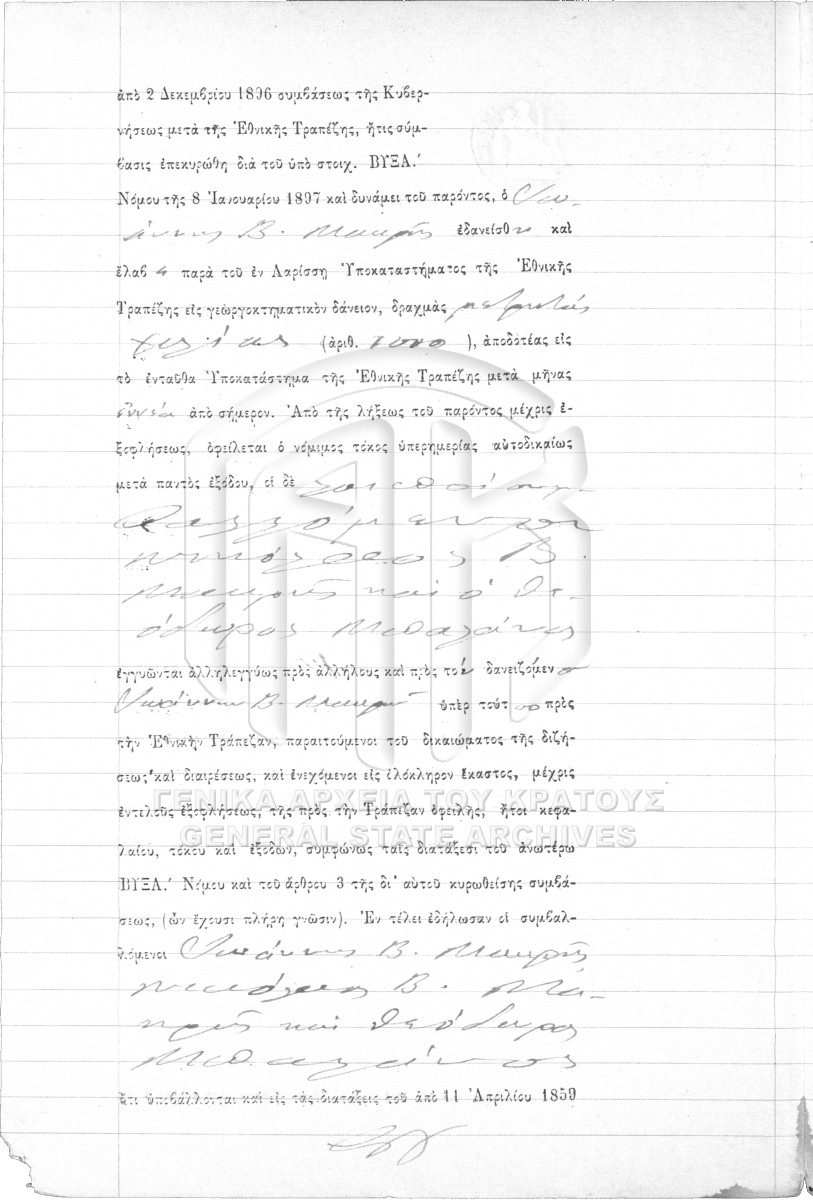 ἀπὸ 2 Δεκεμβρίου 1896 συμβάσεως τῆς Κυβερ-
νήσεως μετὰ τῆς Ἐθνικῆς Τραπέζης, ἥτις σύμ-
βασις ἐπεκυρώθη διὰ τοῦ ὑπὸ στοιχ. ΒΥΞΑ.′
Νόμου τῆς 8 Ἰανουαρίου 1897 καὶ δυνάμει τοῦ παρόντος, ὁ Ἰω-
άννης Β. Μακρῆς ἐδανείσθη καὶ
ἔλαβε παρὰ τοῦ ἐν Λαρίσση Ὑποκαταστήματος τῆς Ἐθνικῆς
Τραπέζης εἰς γεωργοκτηματικὸν δάνειον, δραχμὰς μετρητὰς
χιλίας (ἀριθ. 1000), ἀποδοτέας εἰς
τὸ ἐνταῦθα Ὑποκατάστημα τῆς Ἐθνικῆς Τραπέζης μετὰ μῆνας
ἐννέα ἀπὸ σήμερον. Ἀπὸ τῆς λήξεως τοῦ παρόντος μέχρις ἐ-
ξοφλήσεως, ὀφείλεται ὁ νόμιμος τόκος ὑπερημερίας αὐτοδικαίως
μετὰ παντὸς ἐξόδου, οἱ δὲ λοιποὶ συμ-
βαλλόμενοι
Νικόλαος Β.
Μακρῆς καὶ ὁ Θε-
όδωρος Μπαλάνος
ἐγγυῶνται ἀλληλεγγύως πρὸς ἀλλήλους καὶ πρὸς τὸν δανειζόμενο
Ἰωάννην Β. Μακρῆ ὑπὲρ τούτου πρὸς
τὴν Ἐθνικὴν Τράπεζαν, παραιτούμενοι τοῦ δικαιώματος τῆς διζή-
σεως καὶ διαιρέσεως, καὶ ἐνεχόμενοι εἰς ὁλόκληρον ἕκαστος, μέχρις
ΓΕΝΙΚΑ ΑΡΧΕΙΑ ΤΟΥ ΚΡΑΤΟΥΣ
ἐντελοῦς ἐξοφλήσεως, τῆς πρὸς τὴν Τράπεζαν ὀφειλῆς, ἤτοι κεφα-
GENERAL STATE ARCHIVES
λαίου, τόκου καὶ ἐξόδων, συμφώνως ταῖς διατάξεσι τοῦ ἀνωτέρω
ΒΥΞΑ.′ Νόμου καὶ τοῦ ἄρθρου 3 τῆς δι' αὐτοῦ κυρωθείσης συμβά-
σεως, (ὧν ἔχουσι πλήρη γνῶσιν). Ἐν τέλει ἐδήλωσαν οἱ συμβαλ-
λόμενοι Ἰωάννης Β. Μακρῆς
Νικόλαος Β. Μα-
κρῆς καὶ Θεόδωρος
Μπαλάνος
ὅτι ὑποβάλλονται καὶ εἰς τὰς διατάξεις τοῦ ἀπὸ 11 Ἀπριλίου 1859